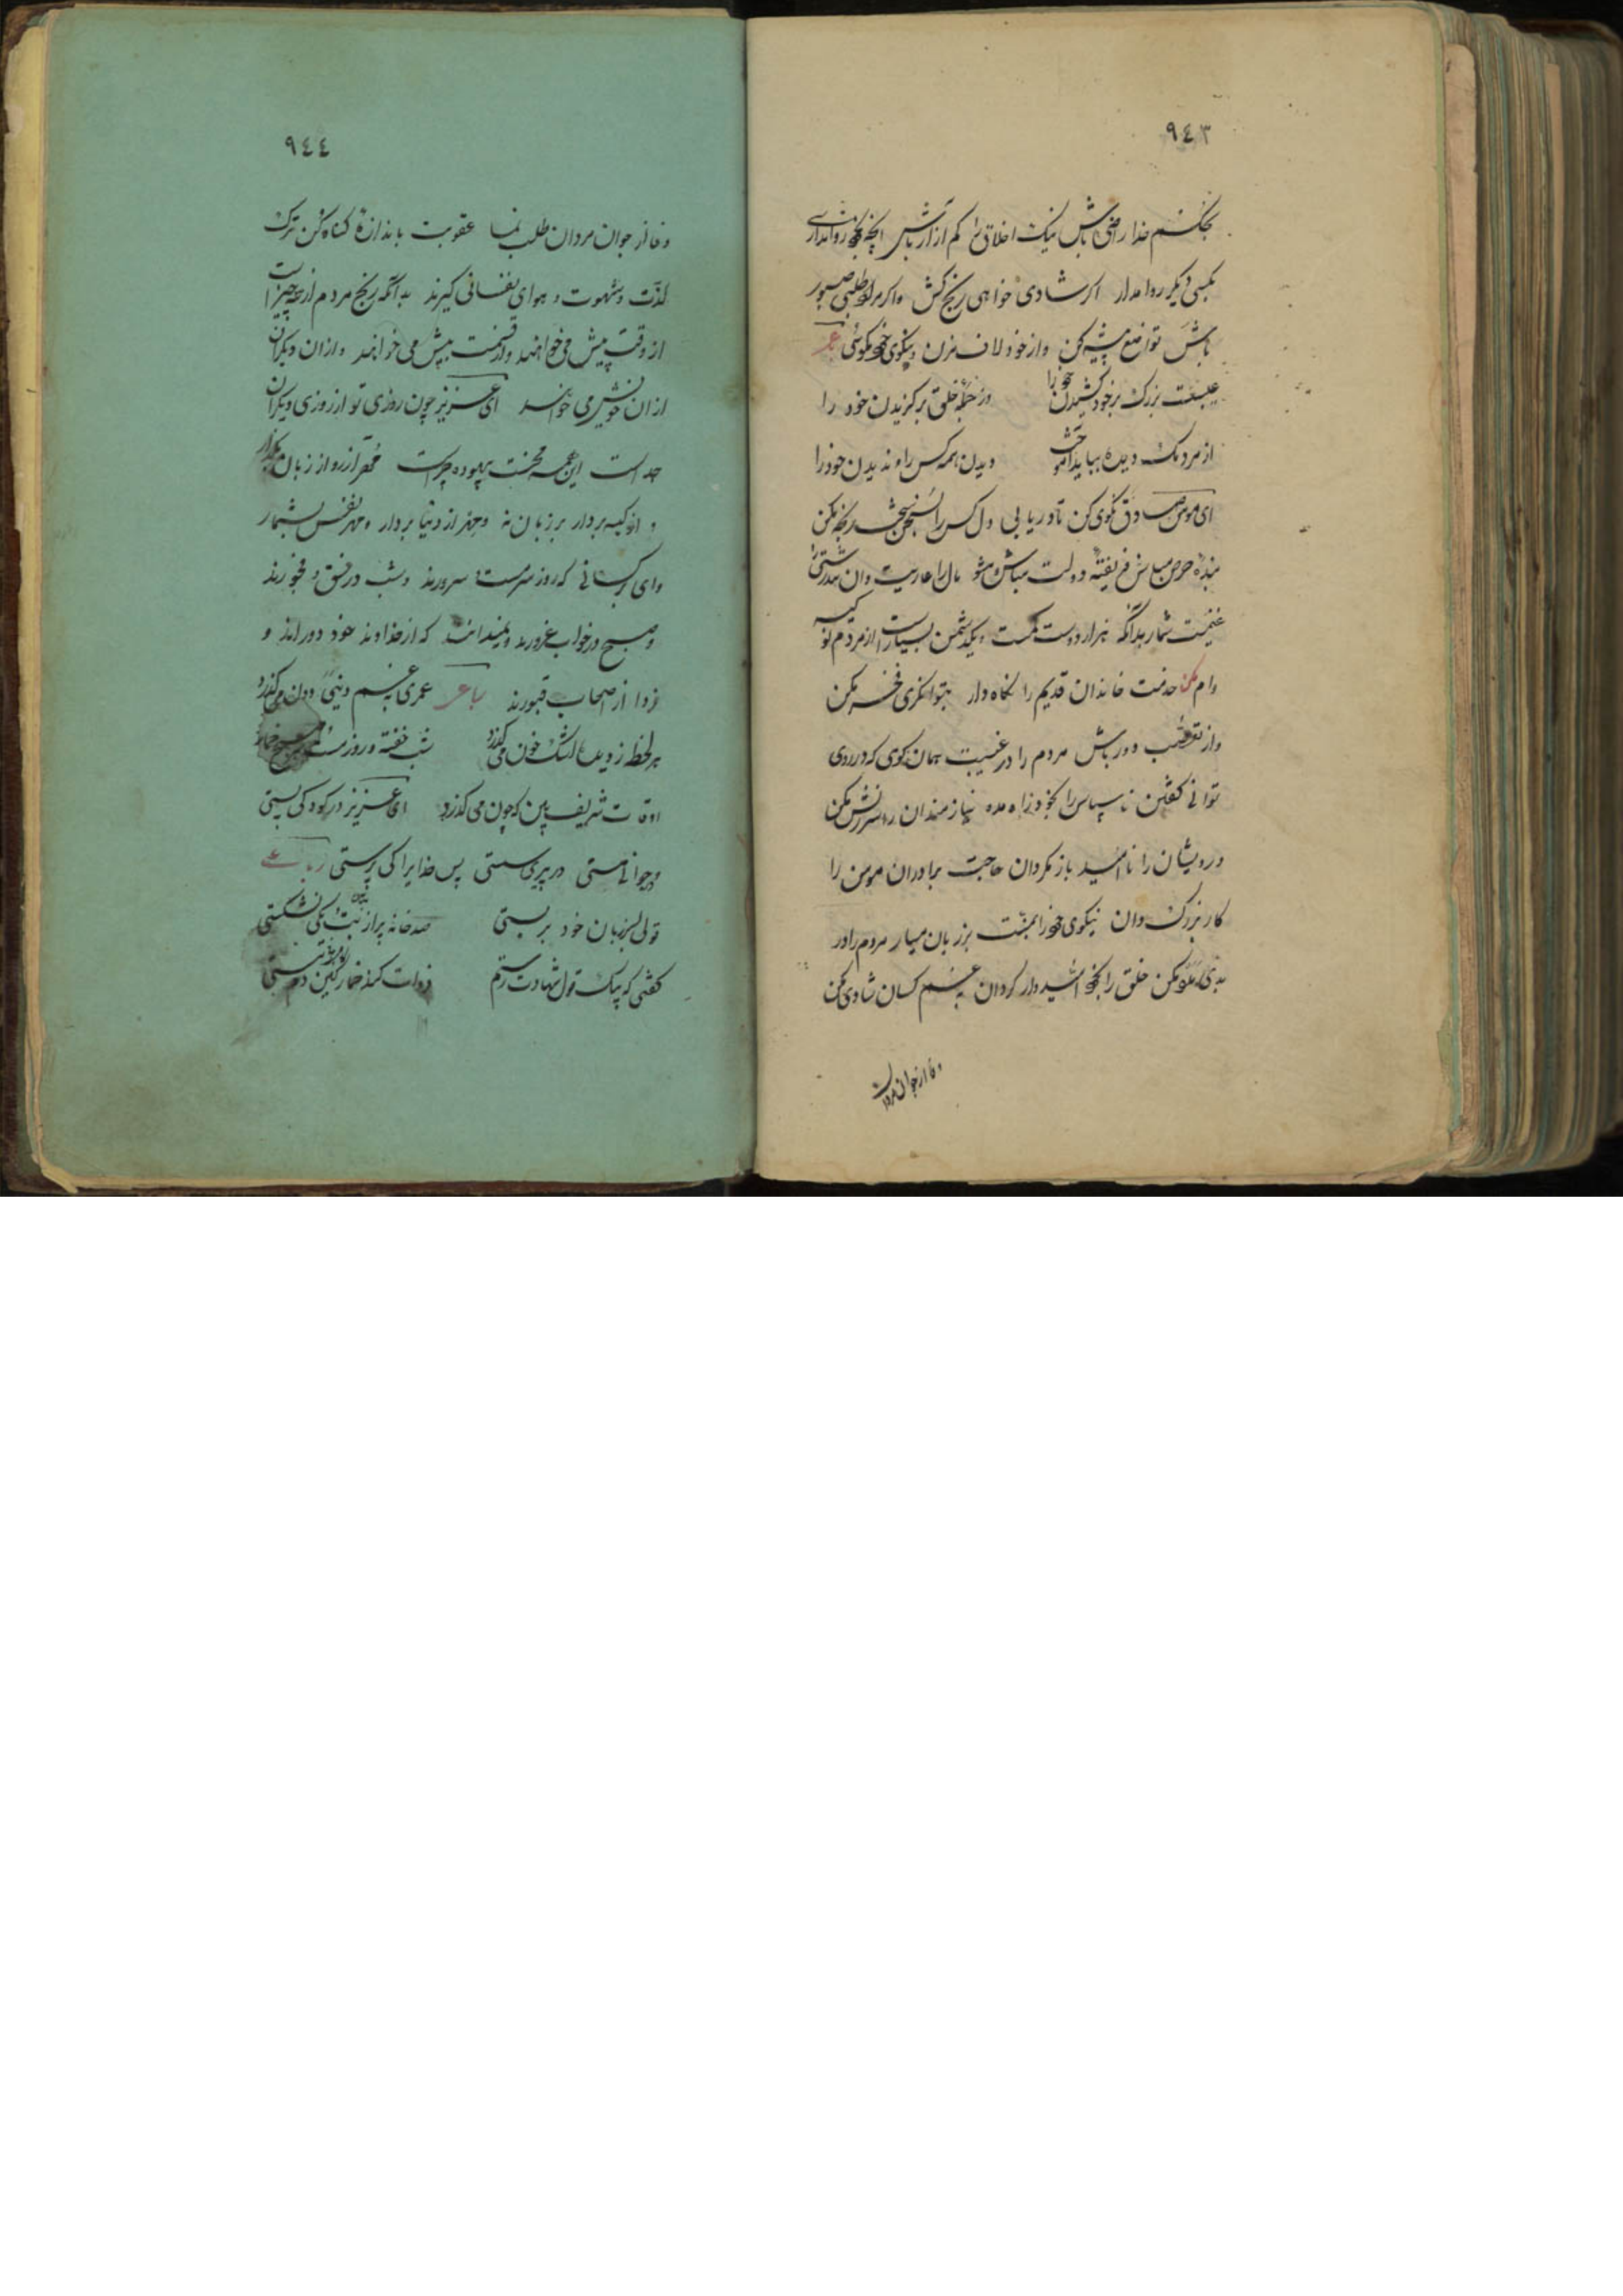 ٩٤٣
بحکم خدا راضی باش نیک اخلاق شو کم آزار باش آنچه بخود روا نداری
بکسی دیگر روا مدار اگر شادی خواهی رنج کش واگر مراد طلبی صبور
باش تواضع پیشه کن واز خود لاف مزن ونیکوی خود مگوی
عیبست بزرگ برخود کشیدن خود را وز جمله خلق برگزیدن خود را
از مردمک دیده بباید آموخت دیدن همه کس را و ندیدن خود را
ای مومن صادق نکوی کن تا دریابی دل کس را بسخن رنجه مکن
بنده حرص مباش فریفته دولت مباش ومشو مال را عاریت دان تندرستی را
غنیمت شمار بدانکه هزار دوست کمست ویکدشمن بسیار است از مردم نو کیسه
وام مکن خدمت خاندان قدیم را نگاه دار بتوانگری فخر مکن
واز تعصب دور باش مردم را در غیبت همان گوی که در روی
توانی گفتن ناسپاس را بخود راه مده نیازمندان را سرزنش مکن
درویشان را ناامید باز مگردان حاجت برادران مومن را
کار بزرگ دان نیکوی خود را بمنت بر زبان میار مردم را در
بدی مکن خلق را بخود امیدوار گردان بغم کسان شادی مکن
وفا از جوان مردان
٩٤٤
وفا از جوان مردان طلب نما عقوبت باندازه گناه کن ترک
لذت وشهوت و هوای نفسانی گیرند بدانکه رنج مردم از سه چیز است
از وقت پیش می خواهند واز قسمت بیش می خواهند و از ان دیگران
از ان خویش می خواهند ای عزیز چون روزی تو از روزی دیگران
جداست این همه محنت بیهوده چراست مهر از رو از زبان بردار
و از کیسه بردار بر زبان نه و مهر از دنیا بردار و مهر نفس بشمار
وای بر کسانی که روز سرمست سرورند وشب در فسق و فجورند
وصبح در خواب غرورند ونمیدانند که از خداوند خود دوراند و
فردا از اصحاب قبورند رباعی عمری بغم دنیی دون می گذرد
هر لحظه ز دیده اشک خون می گذرد شب خفته و روز مست وهر صبح خمار
اوقات شریف بین که چون می گذرد ای عزیز در کودکی پستی
ودر جوانی مستی در پیری سستی پس خدایرا کی پرستی رباعی
قولی بزبان خود بربستی صد خانه پر از بت یکی نشکستی
گفتی که بیک قول شهادت رستم فردات کند خمار کین دم مستی